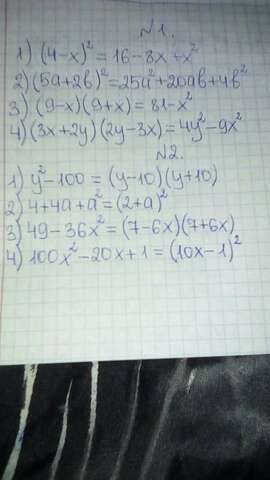 N1.
1) (4-x)² = 16-8x+x²
2) (5a+2b)² = 25a²+20ab+4b²
3) (9-x)(9+x) = 81-x²
4) (3x+2y)(2y-3x) = 4y²-9x²
N2.
1) y²-100 = (y-10)(y+10)
2) 4+4a+a² = (2+a)²
3) 49-36x² = (7-6x)(7+6x)
4) 100x²-20x+1 = (10x-1)²